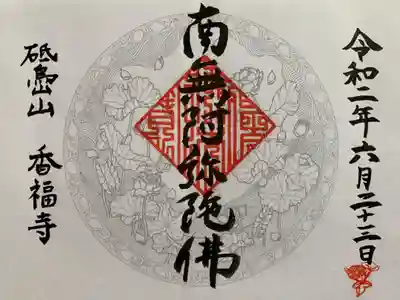 令和二年六月二十三日
南無阿弥陀佛
砥嶋山 香福寺